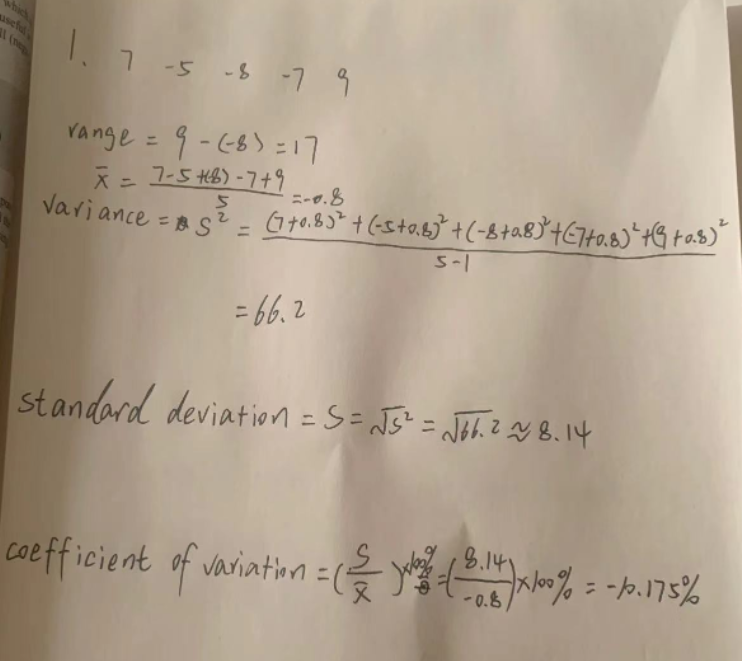 1. 7 -5 -8 -7 9
range = 9 - (-8) = 17
x̄ = (7-5+(-8)-7+9)/5 = -0.8
variance = S² = ((7+0.8)²+(-5+0.8)²+(-8+0.8)²+(-7+0.8)²+(9+0.8)²)/(5-1)
= 66.2
standard deviation = S = √S² = √66.2 ≈ 8.14
coefficient of variation = (S/x̄)×100% = (8.14/-0.8)×100% = -10.175%